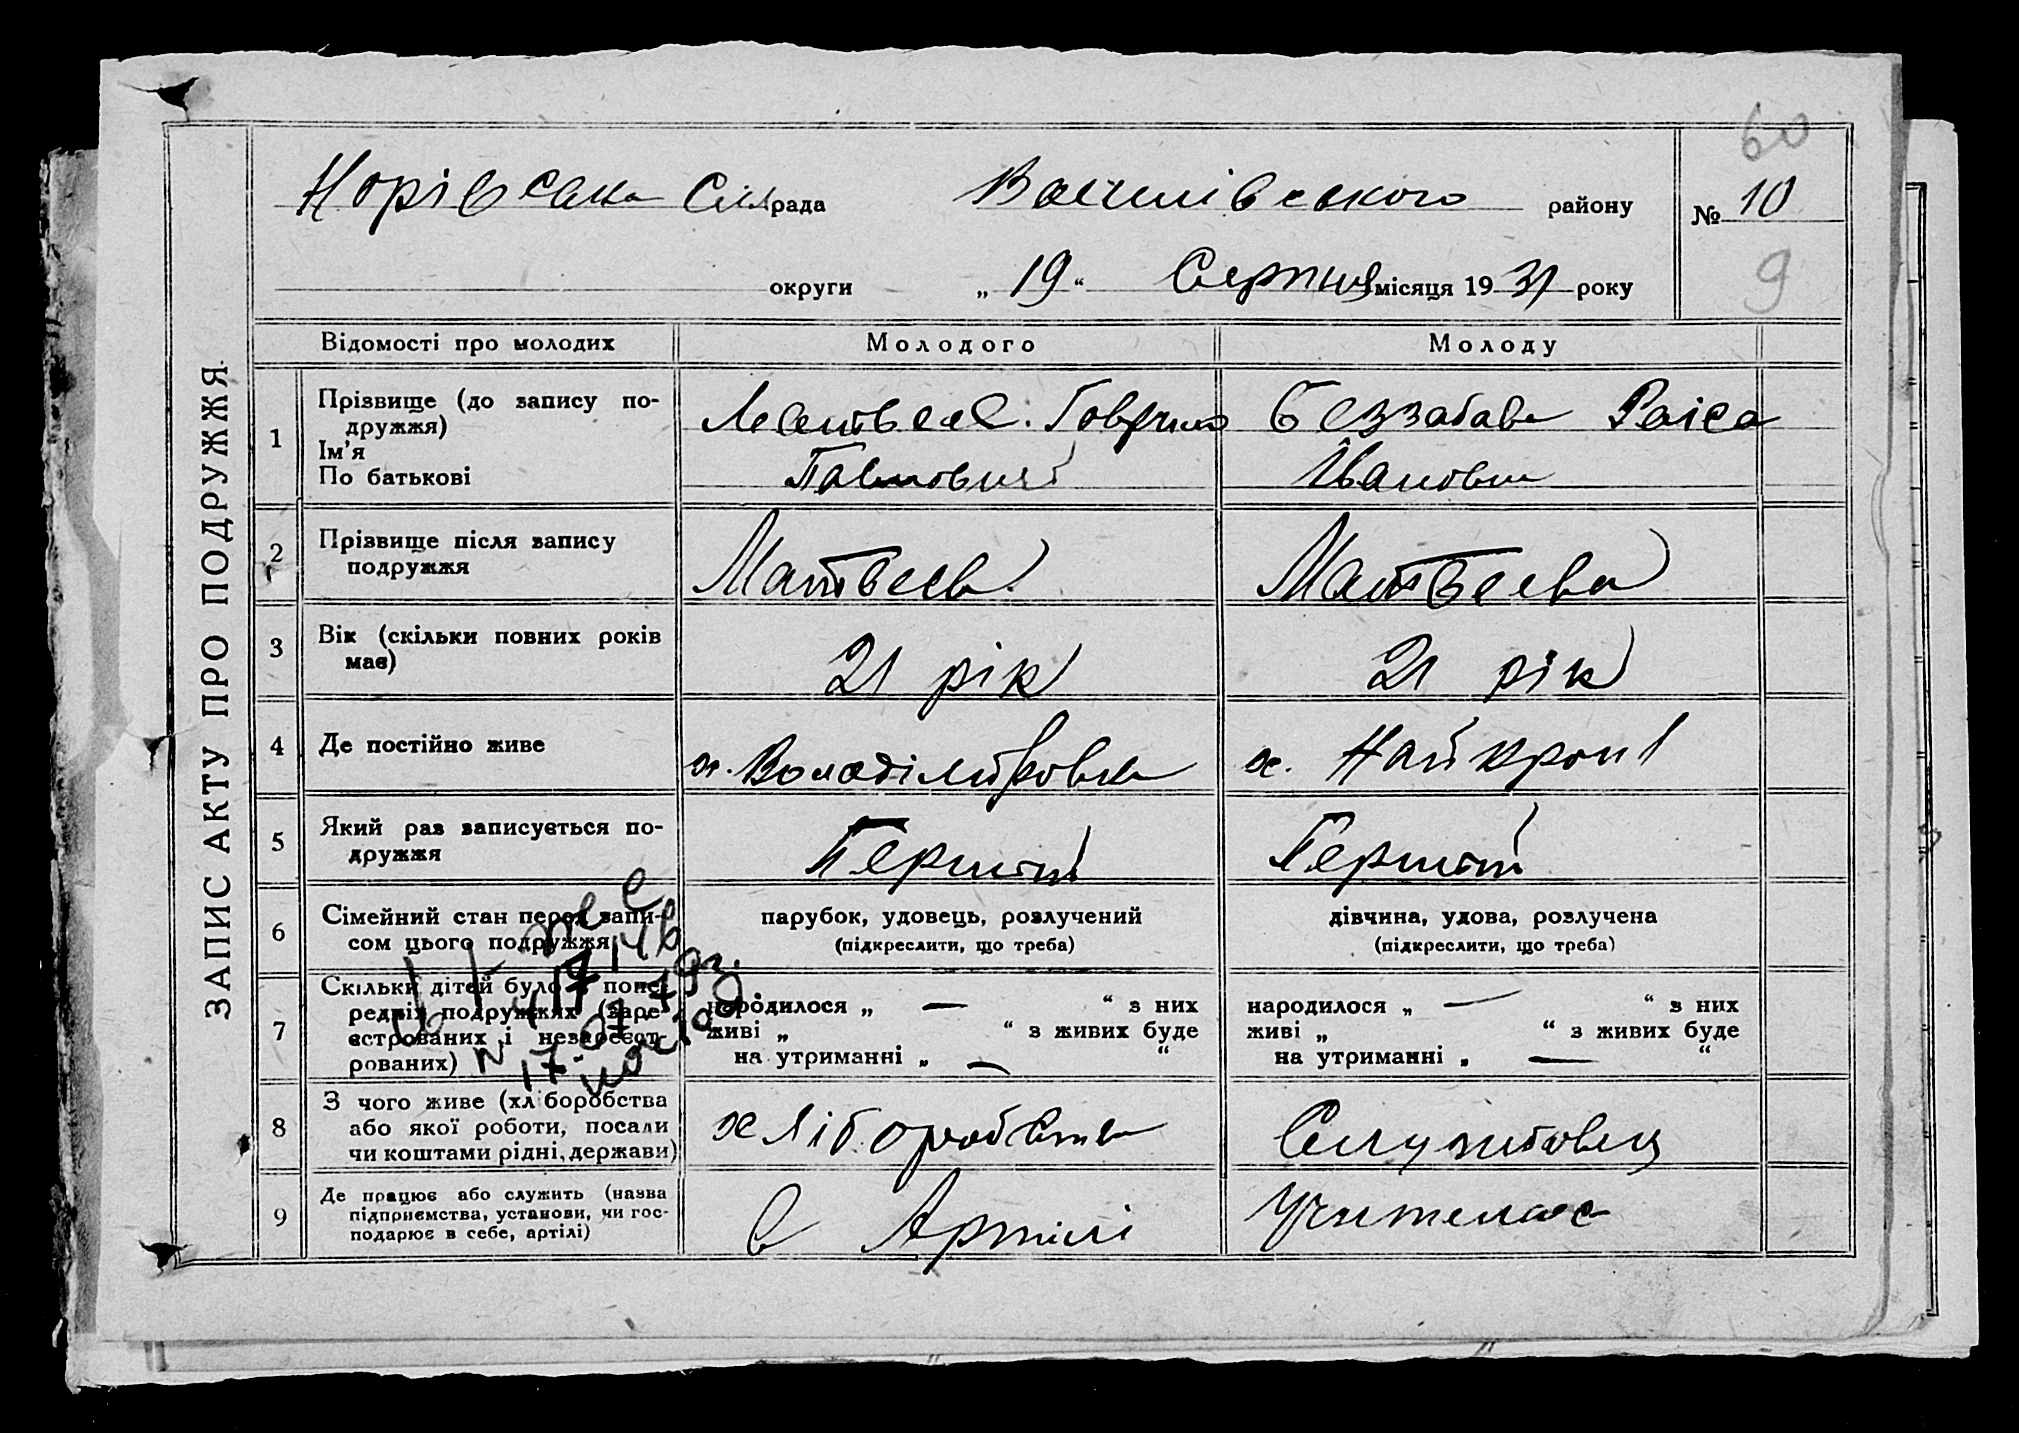 60
Норівська Сільрада Василівського району № 10
округи „ 19 “ Серпня місяця 1931 року
9
ЗАПИС АКТУ ПРО ПОДРУЖЖЯ
Відомості про молодих Молодого Молоду
1 Прізвище (до запису по-
дружжя)
Ім'я
По батькові
Матвєєв. Гаврило
Павлович
Беззабава Раіса
Івановна
2 Прізвище після запису
подружжя
Матвєєв
Матвєєва
3 Вік (скільки повних років
має)
21 рік
21 рік
4 Де постійно живе
х. Володімировка
х. Найкрон
5 Який раз записується по-
дружжя
Перший
Перший
6 Сімейний стан перед запи-
сом цього подружжя
парубок, удовець, розлучений
(підкреслити, що треба)
дівчина, удова, розлучена
(підкреслити, що треба)
7 Скільки дітей було в попе-
редніх подружжях (заре-
єстрованих і незареєст-
рованих)
народилося „ — “ з них
живі „ “ з живих буде
на утриманні „ — “
народилося „ — “ з них
живі „ “ з живих буде
на утриманні „ — “
8 З чого живе (хліборобства
або якої роботи, посади
чи коштами рідні, держави)
хліборобства
Службовец
9 Де працює або служить (назва
підприємства, установи, чи гос-
подарює в себе, артілі)
в Артілі
Учителює